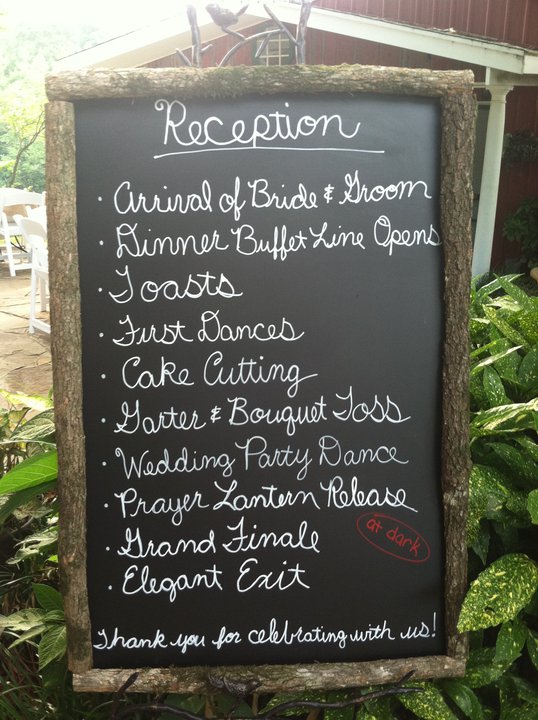 Reception
· Arrival of Bride & Groom
· Dinner Buffet Line Opens
· Toasts
· First Dances
· Cake Cutting
· Garter & Bouquet Toss
· Wedding Party Dance
· Prayer Lantern Release
at dark
· Grand Finale
· Elegant Exit
Thank you for celebrating with us!